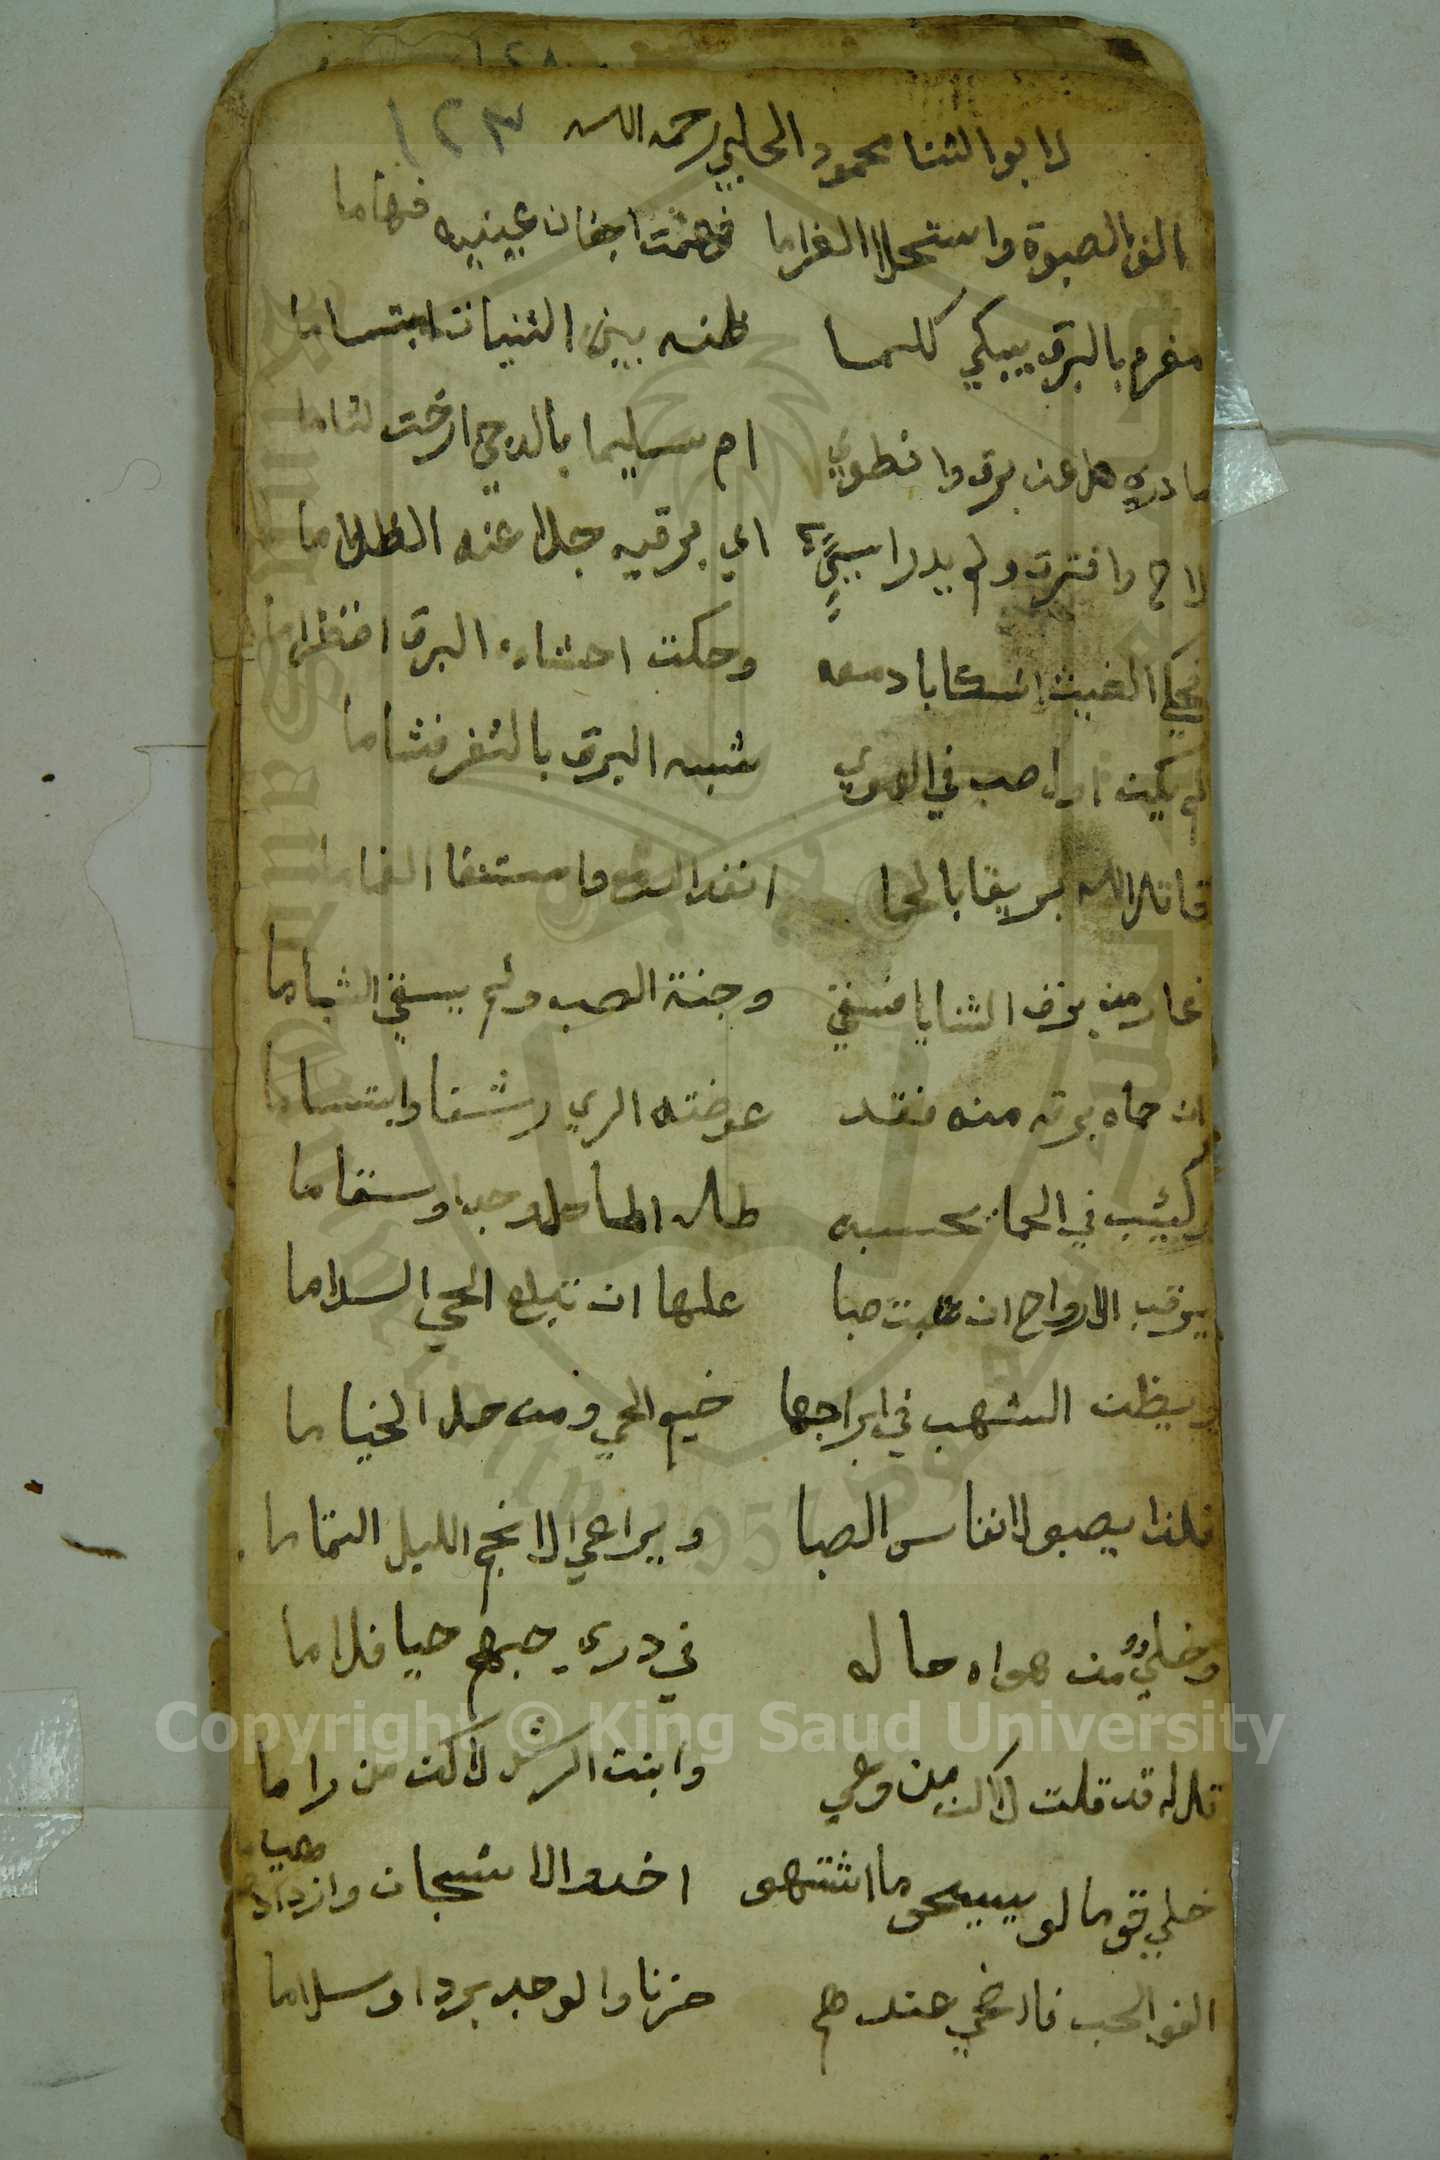 ١٢٨
١٢٣
لابو الثنا محمود الحلبي رحمه الله
الف الصبوة واستحلا الغراما فوهمت اجفان عينيه فهاما
مغرم بالبرق يبكي كلما ظنه بين الثنيات ابتساما
ما دري هل عن برق وانطوي ام سليما بالدجي ارخت لثاما
لاح وافترت ولم يدر اسيً اي برقيه جلا عنه الظلاما
فحكي الغيث انسكابا دمعه وحكت احشاءه البرق اضطراما
لم يكن اول صب في الهوي شبه البرق بالثغر فشاما
قاتل الله بريقا بالحما انفد الدمع واستبقا الغراما
غار من برق الثنايا فسقي وجنة الصب ولم يسقي الشأما
ان حماه برقه منه فقد عوضته الري رشفا وابتساما
وكئيب في الحما تحسبه طلل الماحل وجدا وسقاما
يرقب الارواح ان هبت صبا علها ان تبلغ الحي السلاما
ويظن الشهب في ابراجها خيم الحي ومن حل الخياما
فلذا يصبو لانفاس الصبا ويراعي الانجم الليل التماما
وخليٌ من هواه حاله في دري حبهم حيا فلاما
قل له قد قلت لاكن من وعي وابنت الرشد لاكن من راما
خلي قوما لو يبيحو ما اشتهو اخدو الاشجان وازدادو هياما
الفو الحب فاضحي عندهم حزنا والوجد بردا وسلاما
Copyright © King Saud University
King Saud University
1957